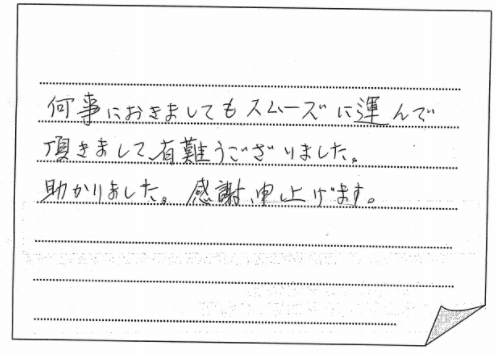 何事におきましてもスムーズに運んで
頂きまして有難うございました。
助かりました。感謝申上げます。